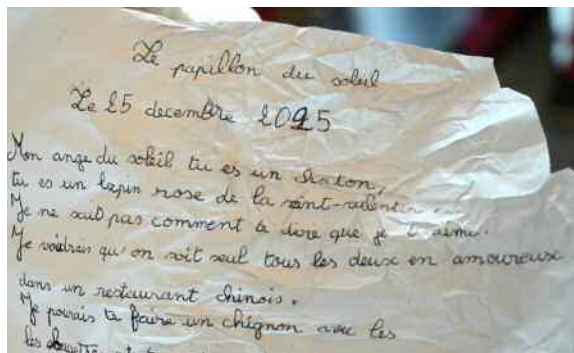 Le papillon du soleil
Le 25 decembre 2025
Mon ange du soleil tu es un chaton,
tu es un lapin rose de la saint-valentin...
Je ne sait pas comment te dire que je t'aime.
Je voidrais qu'on soit seul tous les deux en amoureuse
dans un restaurant chinois.
Je pourais te faire un chignon avec les
les